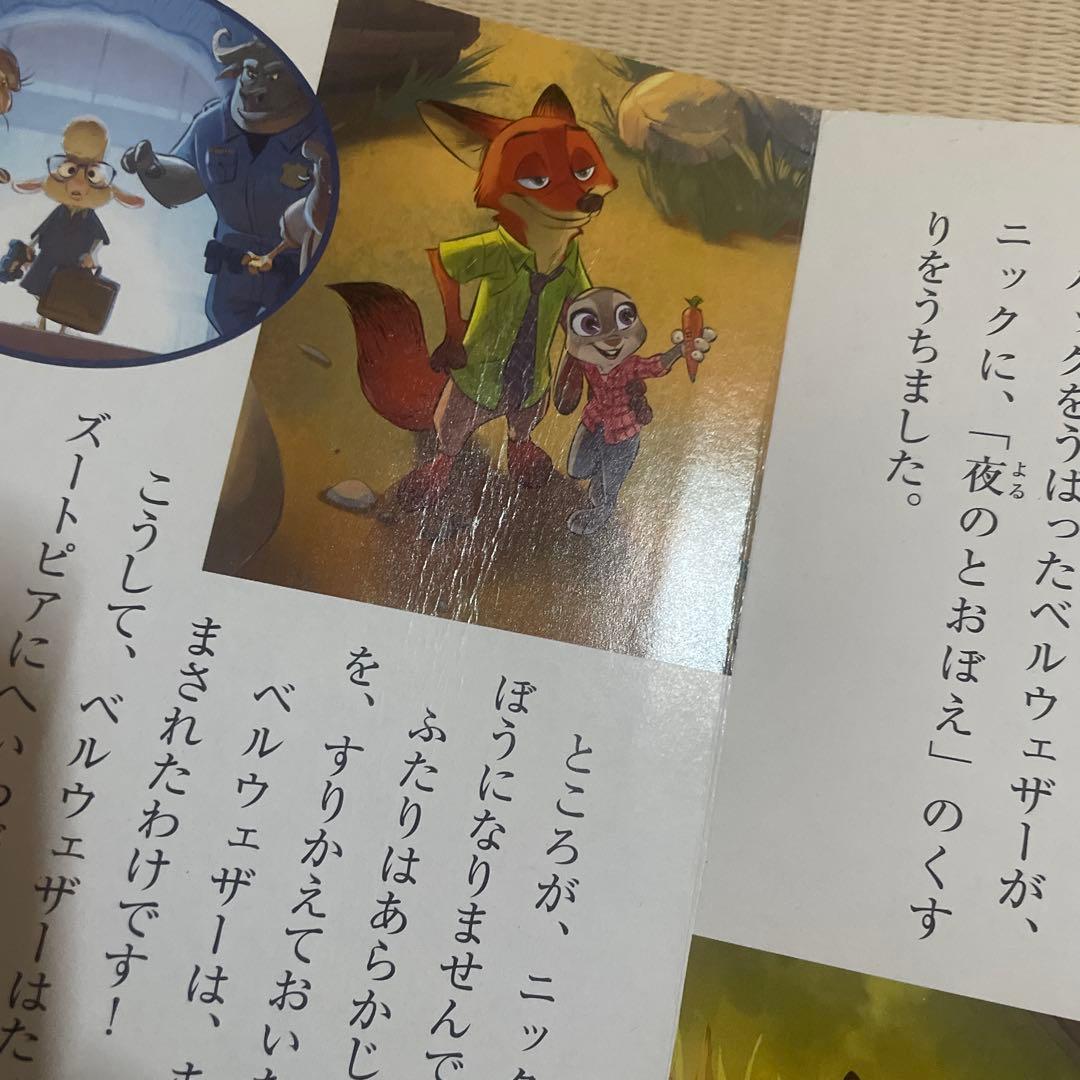 バッグをうばったベルウェザーが、
ニックに、「夜のとおぼえ」のくす
よる
りをうちました。
ところが、ニック
ぼうになりませんで
ふたりはあらかじ
を、すりかえておいた
ベルウェザーは、
まされたわけです！
こうして、ベルウェザーはた
ズートピアにへいわ